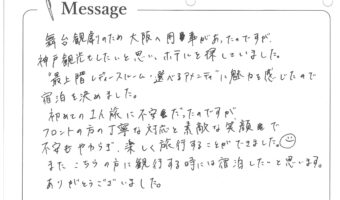 Message
舞台観劇のため大阪へ用事があったのですが、
神戸観光もしたいと思い、ホテルを探していました。
"最上階レディースルーム・選べるアメニティ"に魅力を感じたので
宿泊を決めました。
初めての1人旅に不安だったのですが
フロントの方の丁寧な対応と素敵な笑顔で
不安もやわらぎ、楽しく旅行することができました。
また こちらの方に観行する時には宿泊したいと思います。
ありがとうございました。